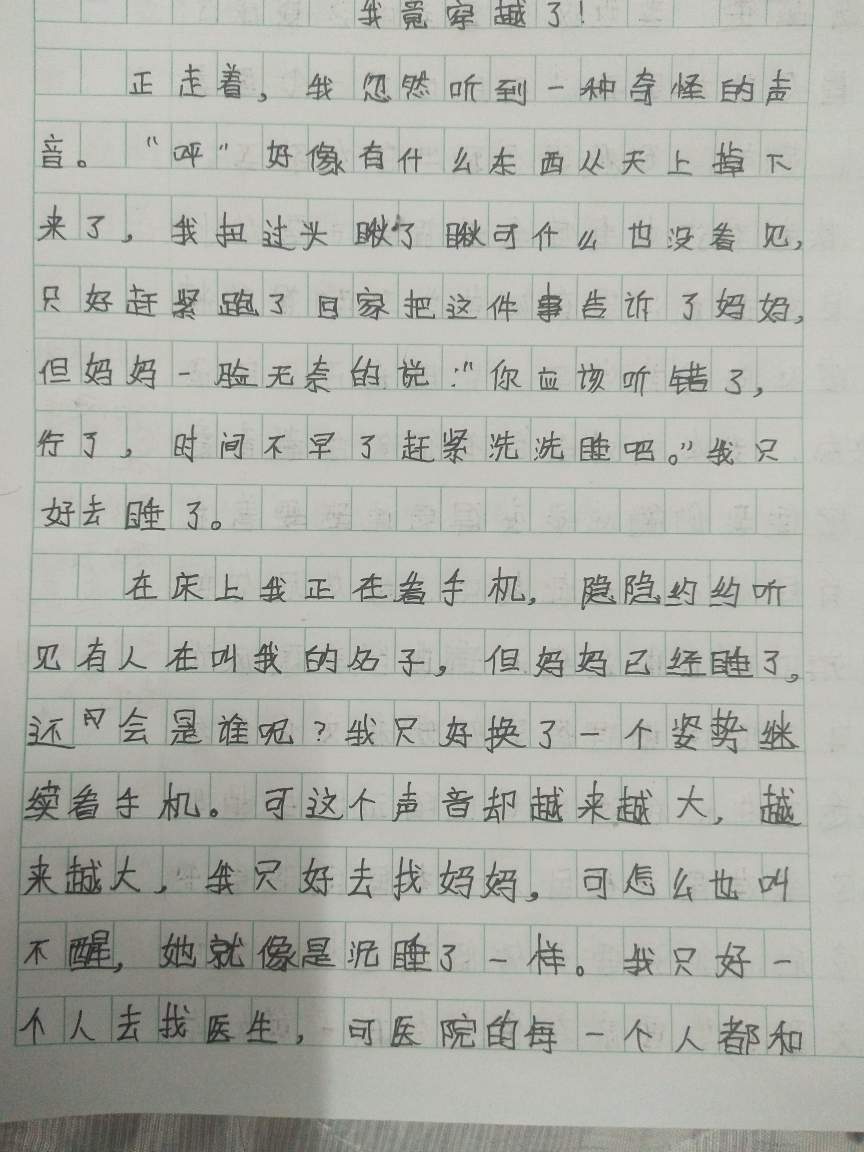 我竟穿越了!
正走着，我忽然听到一种奇怪的声
音。“呯”好像有什么东西从天上掉下
来了，我扭过头瞅了瞅可什么也没看见，
只好赶紧跑了回家把这件事告诉了妈妈，
但妈妈一脸无奈的说：“你应该听错了，
行了，时间不早了赶紧洗洗睡吧。”我只
好去睡了。
在床上我正在看手机，隐隐约约听
见有人在叫我的名子，但妈妈已经睡了，
还会是谁呢？我只好换了一个姿势继
续看手机。可这个声音却越来越大，越
来越大，我只好去找妈妈，可怎么也叫
不醒，她就像是沉睡了一样。我只好一
个人去找医生，可医院的每一个人都和